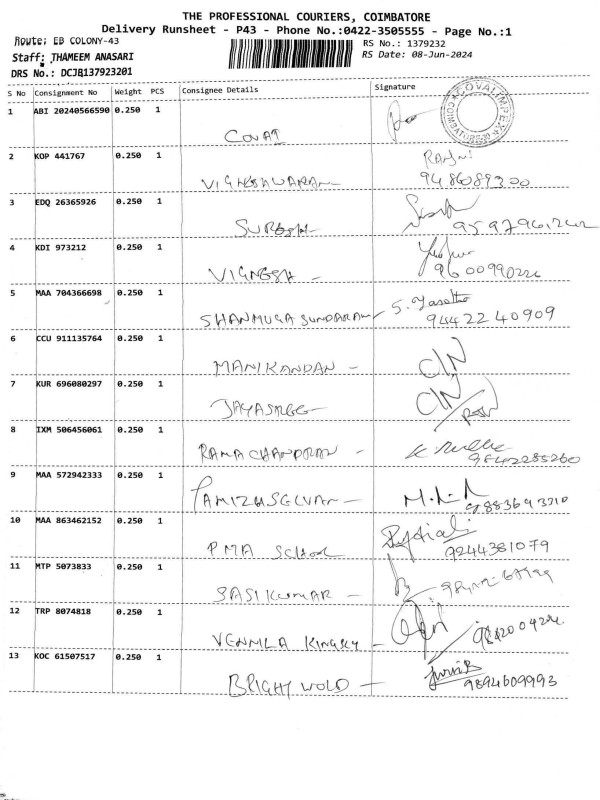 THE PROFESSIONAL COURIERS, COIMBATORE
Delivery Runsheet - P43 - Phone No.:0422-3505555 - Page No.:1
Route: EB COLONY-43
RS No.: 1379232
Staff: THAMEEM ANASARI
RS Date: 08-Jun-2024
DRS No.: DCJB137923201
S No Consignment No Weight PCS Consignee Details Signature
1 ABI 20240566590 0.250 1
COVAI
2 KOP 441767 0.250 1 Ranjni
VIGNESHWARAN 9486089300
3 EDQ 26365926 0.250 1
SURESH
4 KDI 973212 0.250 1
VIGNESH -
5 MAA 704366698 0.250 1
SHANMUGA SUNDARAM 9442240909
6 CCU 911135764 0.250 1
MANIKANDAN - C/N
7 KUR 696080297 0.250 1
JAYASREE - C/N
8 IXM 506456061 0.250 1
RAMA CHANDRAN - 9842285260
9 MAA 572942333 0.250 1
TAMIZHSELVAN -
10 MAA 863462152 0.250 1
PMA School 7244381079
11 MTP 5073833 0.250 1
SASIKUMAR -
12 TRP 8074818 0.250 1
VENMLA KINGSLY -
13 KOC 61507517 0.250 1
BRIGHT WOLD - 9894609993